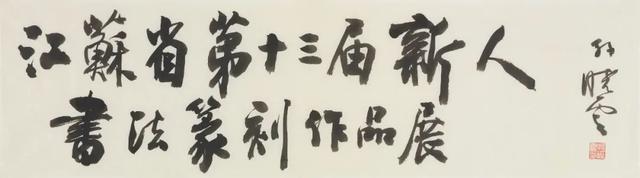 江蘇省第十三届新人
書法篆刻作品展
孙晓云